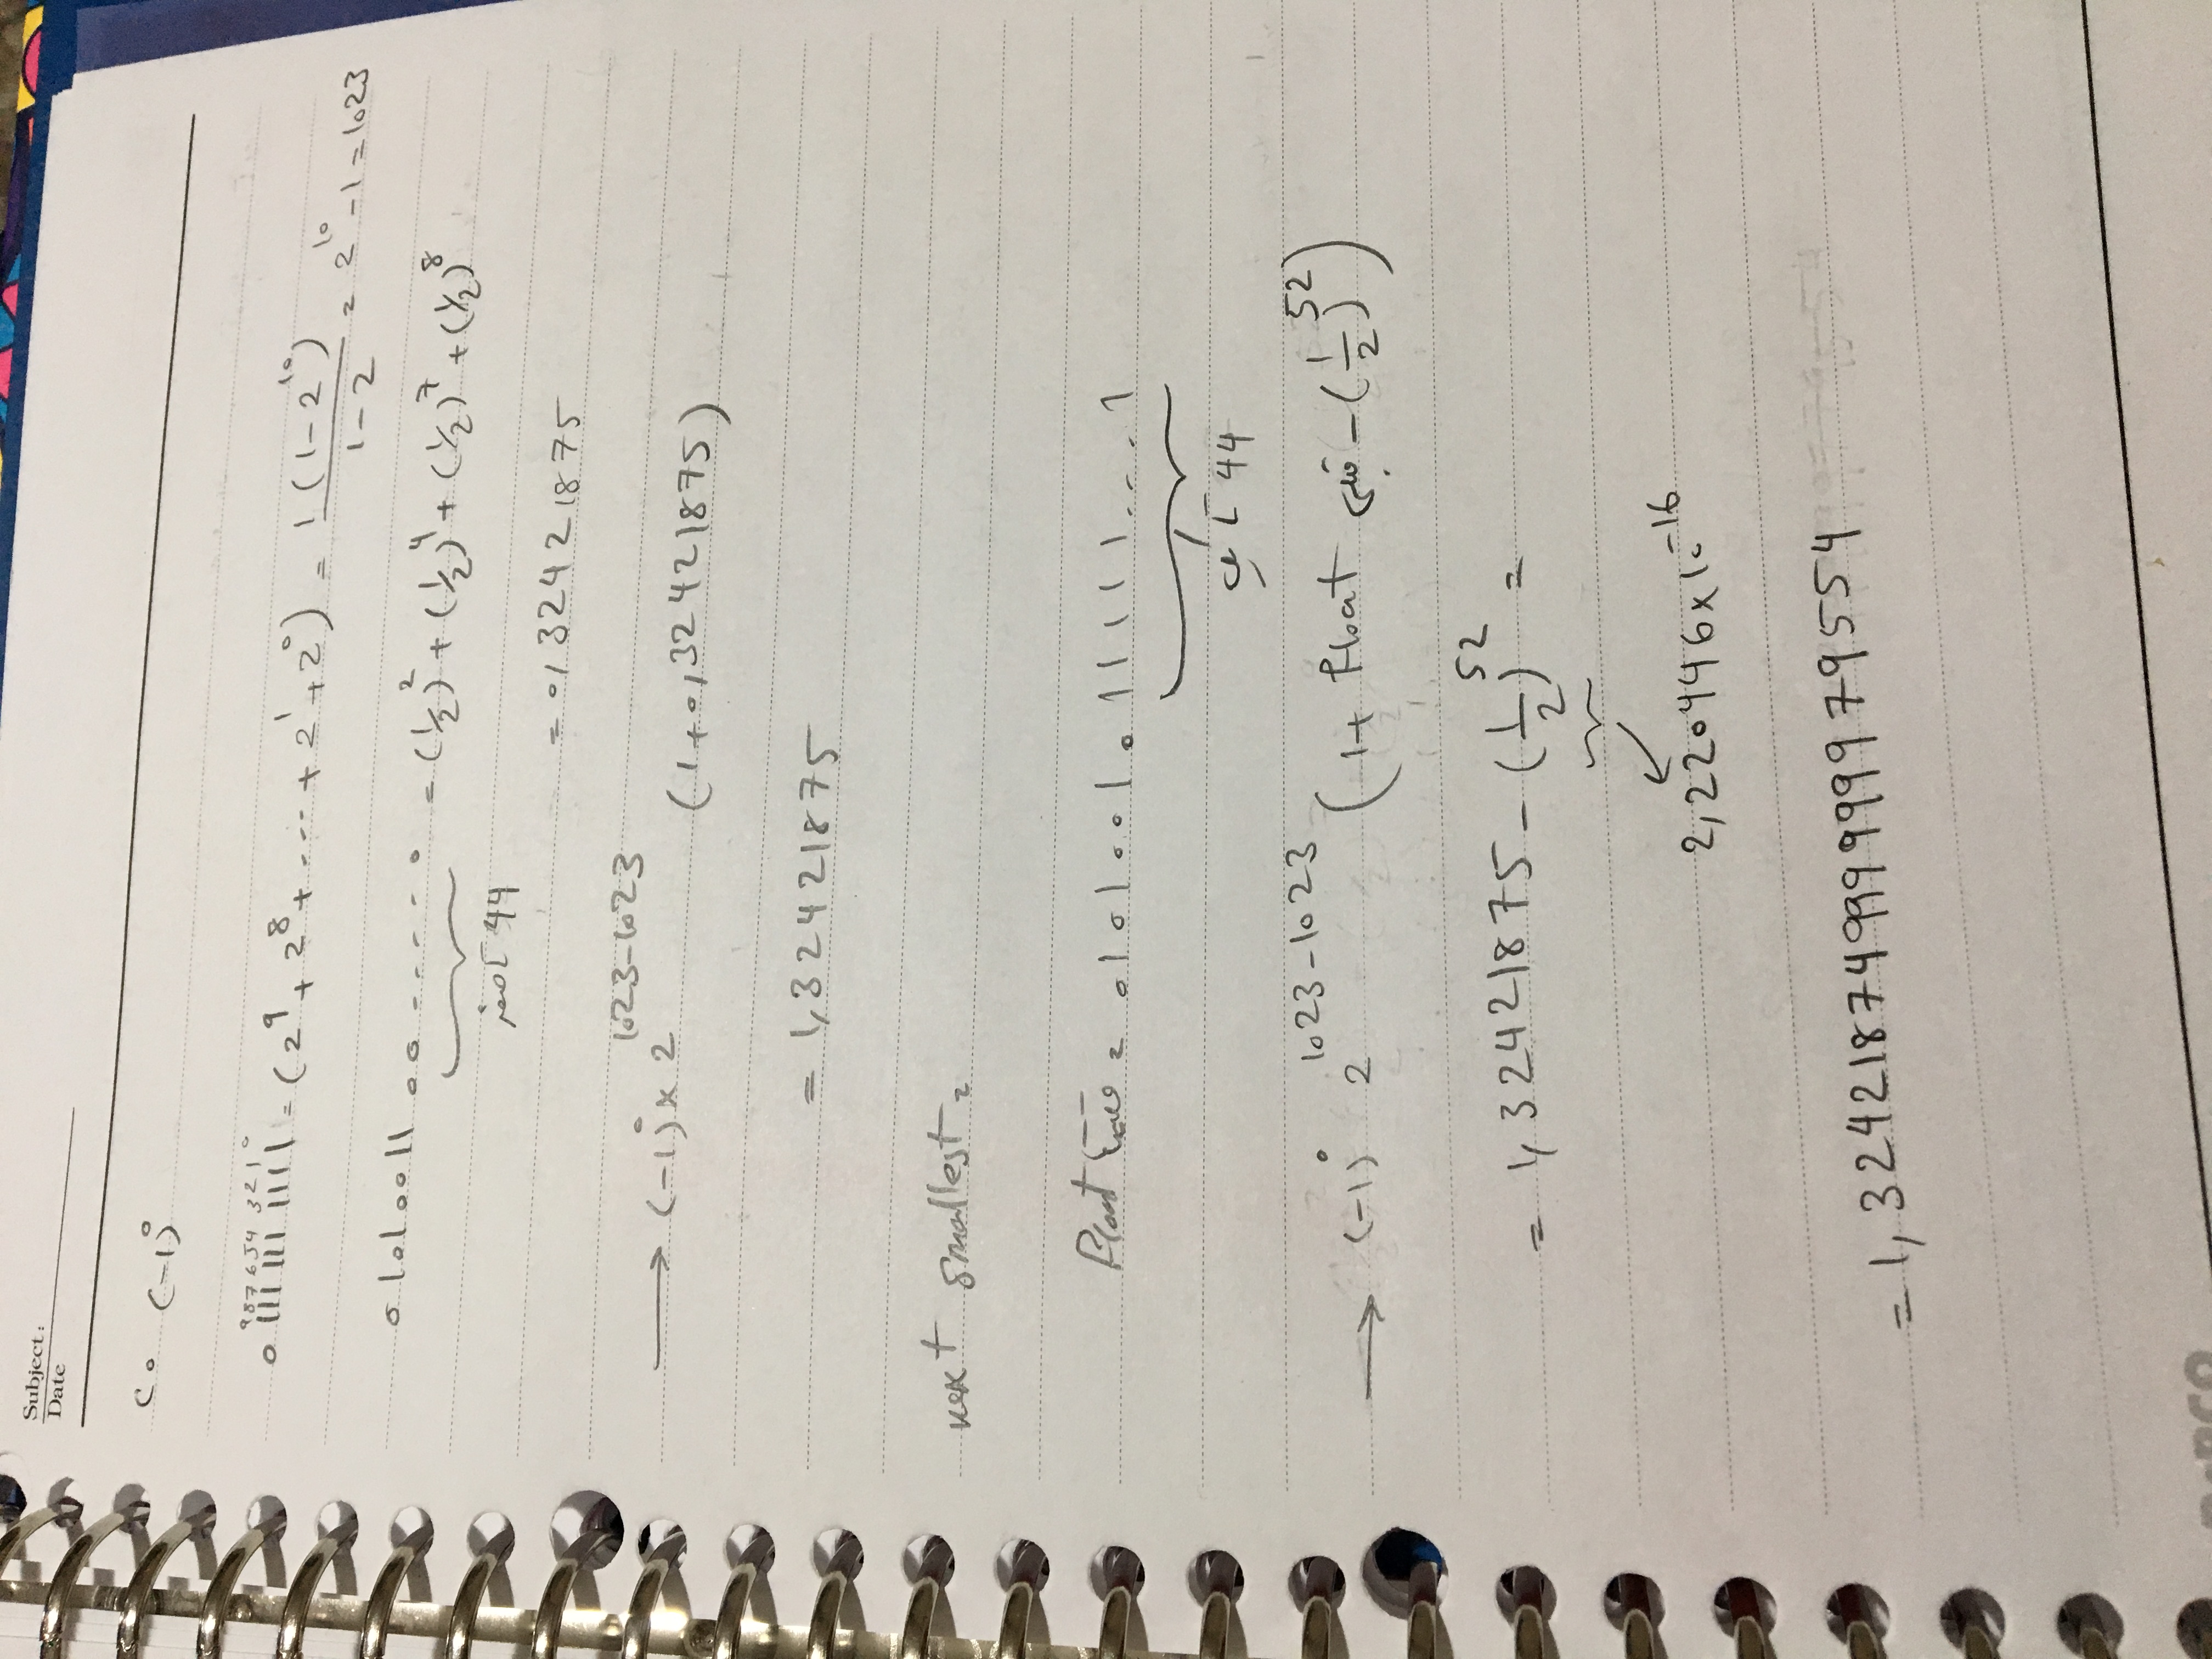 Subject:
Date
C. (-1)^0
9 8 7 6 5 4 3 2 1 0
0 111 111 1111 = (2^9 + 2^8 + ... + 2^1 + 2^0) = 1(1-2^10)/(1-2) = 2^10 - 1 = 1023
0 1 0 1 0 0 1 1 0 0 ..... 0 = (1/2)^2 + (1/2)^4 + (1/2)^7 + (1/2)^8
44 تا صفر
= 0,32421875
→ (-1)^0 × 2^1023-1023 (1+0,32421875)
= 1,32421875
next smallest =
Float = 0 1 0 1 0 0 1 0 1 1 1 1 1 ... 1
44 تا یک
→ (-1)^0 2^1023-1023 (1+ Float قبلی - (1/2)^52)
= 1,32421875 - (1/2)^52 =
2,220446×10^-16
= 1,324218749999999979554